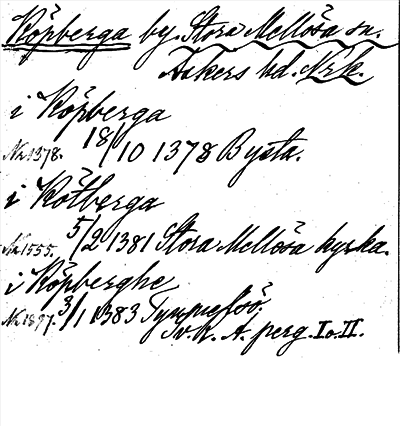 Köpberga by. Stora Mellösa sn.
Askers hd. Nrk.
i Köpberga
Nr 1378. 18/10 1378 Bysta.
i Kötberga
Nr 1555. 5/2 1381 Stora Mellösa kyrka.
i Köpberghe
Nr 1897. 3/1 1383
Sv. R. A. perg. I o. II.